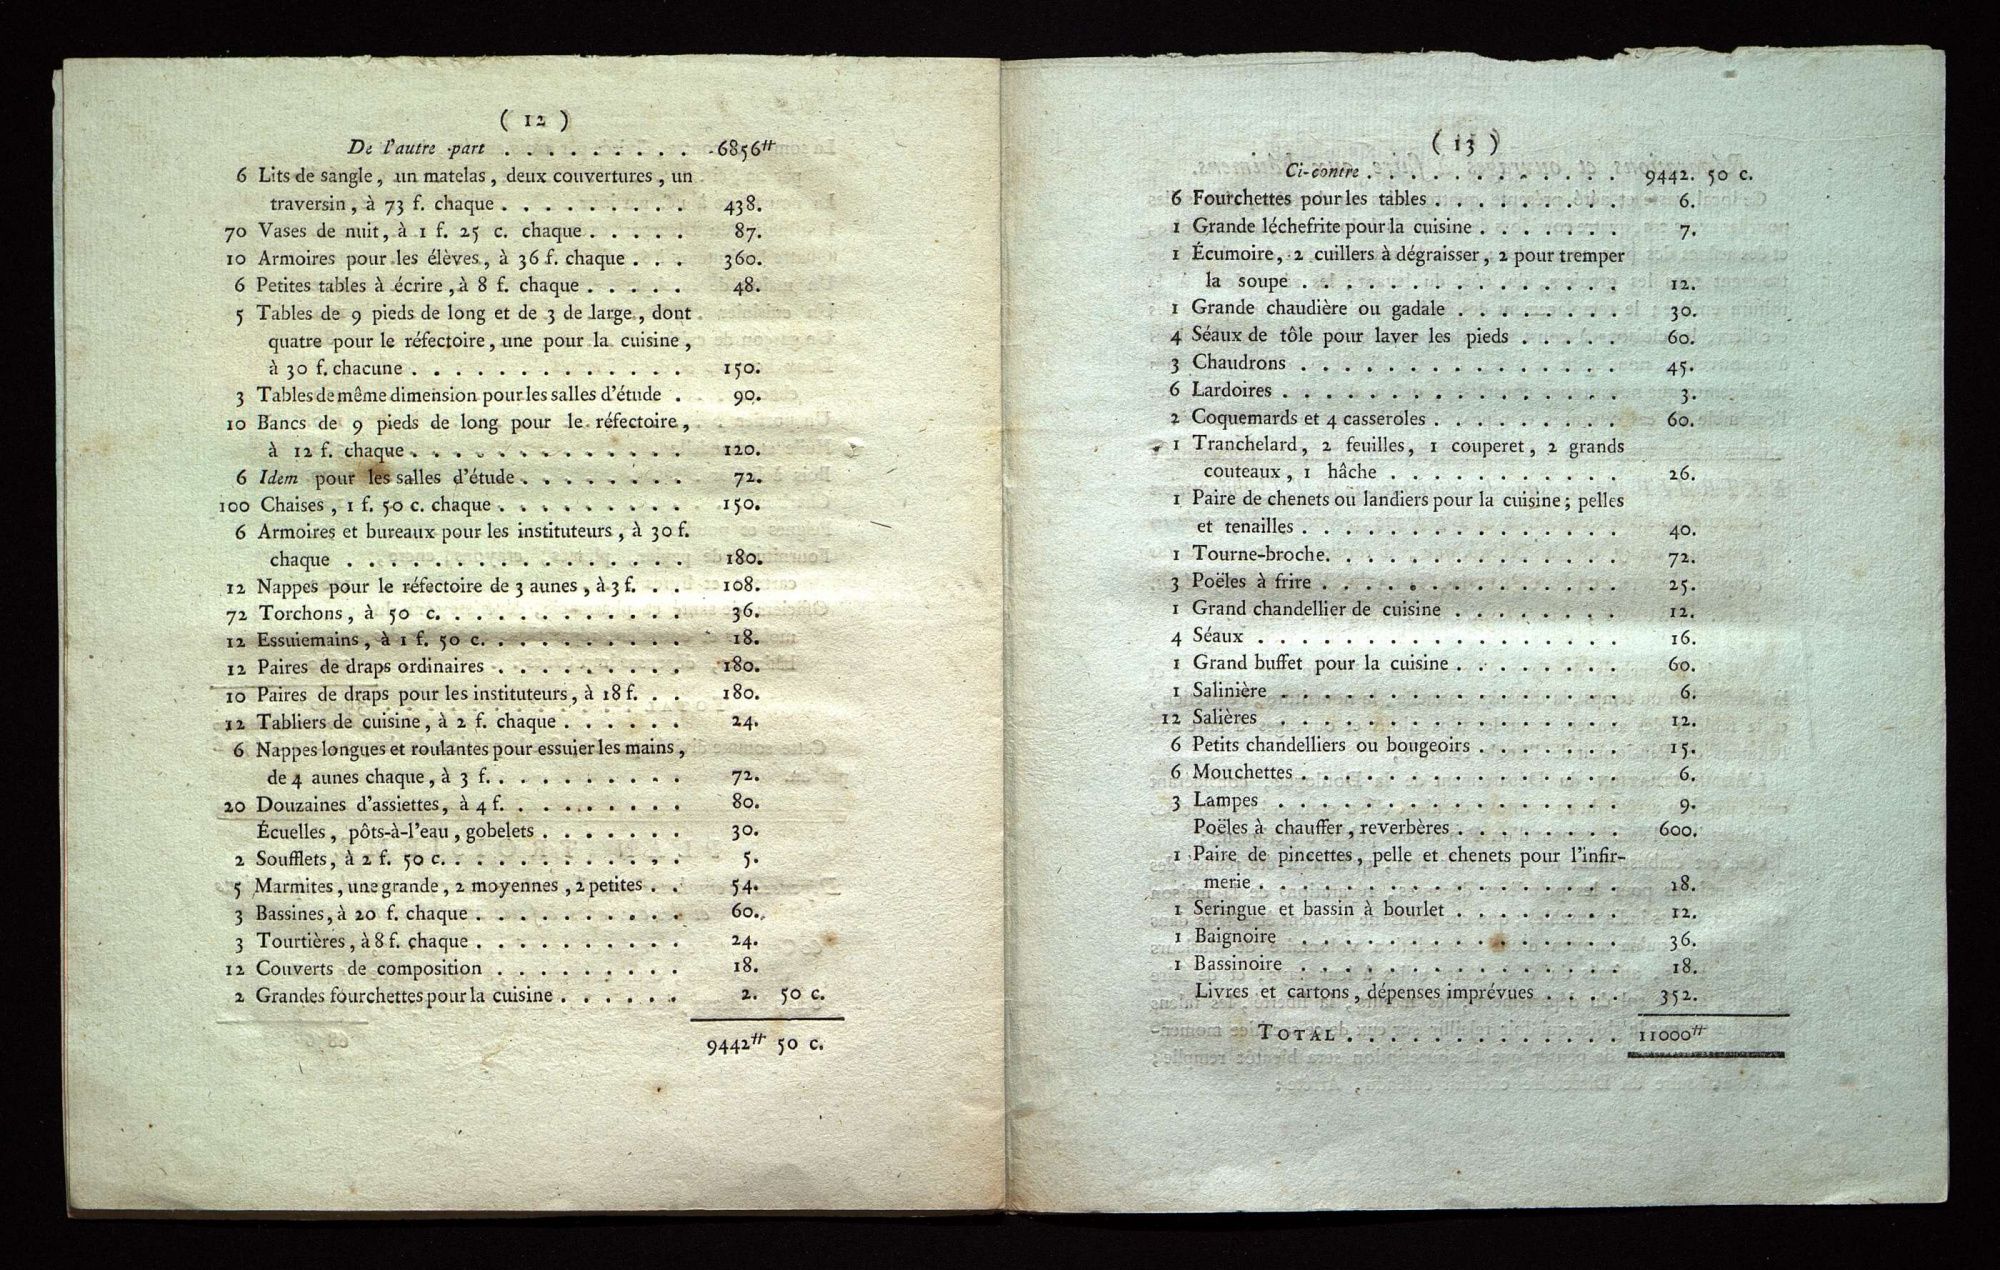 ( 12 )
De l'autre part . . . . . . . . . 6856₶
6 Lits de sangle, un matelas, deux couvertures, un
traversin, à 73 f. chaque . . . . . . . . . 438.
70 Vases de nuit, à 1 f. 25 c. chaque . . . . . 87.
10 Armoires pour les élèves, à 36 f. chaque . . . 360.
6 Petites tables à écrire, à 8 f. chaque . . . . . 48.
5 Tables de 9 pieds de long et de 3 de large, dont
quatre pour le réfectoire, une pour la cuisine,
à 30 f. chacune . . . . . . . . . . . . . 150.
3 Tables de même dimension pour les salles d'étude . 90.
10 Bancs de 9 pieds de long pour le réfectoire,
à 12 f. chaque . . . . . . . . . . . . . 120.
6 Idem pour les salles d'étude . . . . . . . . 72.
100 Chaises, 1 f. 50 c. chaque . . . . . . . . . 150.
6 Armoires et bureaux pour les instituteurs, à 30 f.
chaque . . . . . . . . . . . . . . . . 180.
12 Nappes pour le réfectoire de 3 aunes, à 3 f. . . 108.
72 Torchons, à 50 c. . . . . . . . . . . . 36.
12 Essuiemains, à 1 f. 50 c. . . . . . . . . . 18.
12 Paires de draps ordinaires . . . . . . . . . 180.
10 Paires de draps pour les instituteurs, à 18 f. . . 180.
12 Tabliers de cuisine, à 2 f. chaque . . . . . . 24.
6 Nappes longues et roulantes pour essuier les mains,
de 4 aunes chaque, à 3 f. . . . . . . . . . 72.
20 Douzaines d'assiettes, à 4 f. . . . . . . . . 80.
Écuelles, pôts-à-l'eau, gobelets . . . . . . . 30.
2 Soufflets, à 2 f. 50 c. . . . . . . . . . . 5.
5 Marmites, une grande, 2 moyennes, 2 petites . . 54.
3 Bassines, à 20 f. chaque . . . . . . . . . . 60.
3 Tourtières, à 8 f. chaque . . . . . . . . . . 24.
12 Couverts de composition . . . . . . . . . 18.
2 Grandes fourchettes pour la cuisine . . . . . . 2. 50 c.
9442₶ 50 c.
( 13 )
Ci-contre . . . . . . . . . . . . 9442. 50 c.
6 Fourchettes pour les tables . . . . . . . . . 6.
1 Grande léchefrite pour la cuisine . . . . . . . 7.
1 Écumoire, 2 cuillers à dégraisser, 2 pour tremper
la soupe . . . . . . . . . . . . . . . 12.
1 Grande chaudière ou gadale . . . . . . . . 30.
4 Séaux de tôle pour laver les pieds . . . . . 60.
3 Chaudrons . . . . . . . . . . . . . . . 45.
6 Lardoires . . . . . . . . . . . . . . . . 3.
2 Coquemards et 4 casseroles . . . . . . . . . 60.
1 Tranchelard, 2 feuilles, 1 couperet, 2 grands
couteaux, 1 hâche . . . . . . . . . . . 26.
1 Paire de chenets ou landiers pour la cuisine; pelles
et tenailles . . . . . . . . . . . . . . . 40.
1 Tourne-broche. . . . . . . . . . . . . . 72.
3 Poëles à frire . . . . . . . . . . . . . . 25.
1 Grand chandellier de cuisine . . . . . . . . 12.
4 Séaux . . . . . . . . . . . . . . . . . 16.
1 Grand buffet pour la cuisine . . . . . . . . 60.
1 Salinière . . . . . . . . . . . . . . . . 6.
12 Salières . . . . . . . . . . . . . . . . 12.
6 Petits chandelliers ou bougeoirs . . . . . . . 15.
6 Mouchettes . . . . . . . . . . . . . . . 6.
3 Lampes . . . . . . . . . . . . . . . . 9.
Poëles à chauffer, reverbères . . . . . . . . 600.
1 Paire de pincettes, pelle et chenets pour l'infir-
merie . . . . . . . . . . . . . . . . . 18.
1 Seringue et bassin à bourlet . . . . . . . . 12.
1 Baignoire . . . . . . . . . . . . . . . 36.
1 Bassinoire . . . . . . . . . . . . . . . 18.
Livres et cartons, dépenses imprévues . . . . 352.
TOTAL . . . . . . . . . . . . . 11000₶